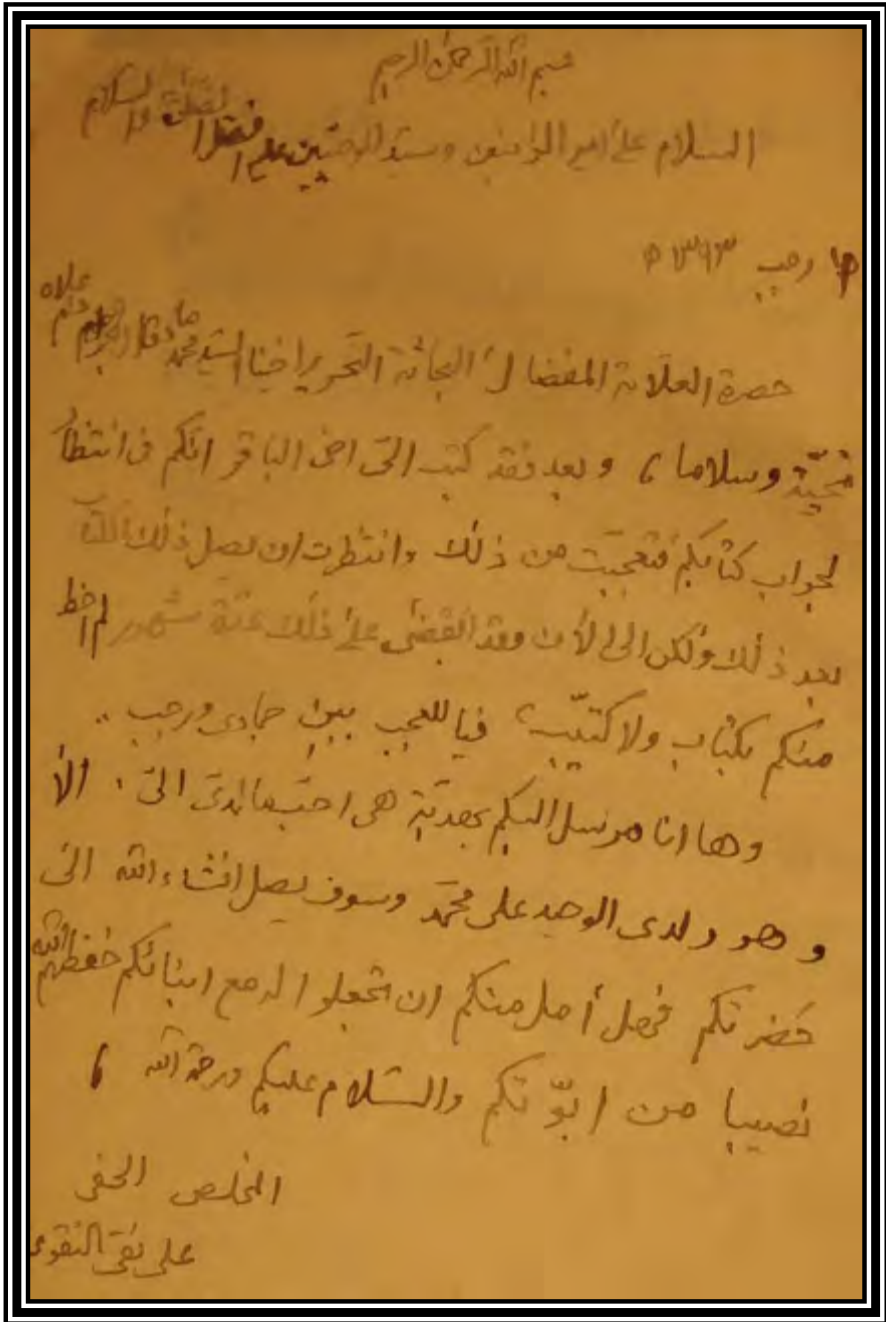 بسم الله الرحمن الرحيم
السلام على امير المؤمنين وسيد الوصيين عليه افضل الصلوة والسلام
رجب
حضرة العلامة المفضال البحاثة النحرير اخينا السيد محمد صادق دام علاه
تحيّة وسلاما، وبعد فقد كتب الىّ اخى الباقر انكم فى انتظار
لجواب كتابكم فتعجبت من ذلك وانتظرت ان يصل ذلك الكتاب
بعد ذلك ولكن الى الآن وقد انقضى على ذلك عدّة شهور لم احظ
منكم بكتاب ولا كتيّب، فيا للعجب بين جمادى ورجب ..
وها انا مرسل اليكم بهديّة هى احبّ ما لدىّ الىّ، الا
وهو ولدى الوحيد على محمّد وسوف يصل انشاء الله الى
حضرتكم فهل أمل منكم ان تجعلوا له مع ابنائكم حفظهم الله
نصيبا من ابوّتكم والسّلام عليكم ورحمة الله،
المخلص الحفى
على نقى النقوى